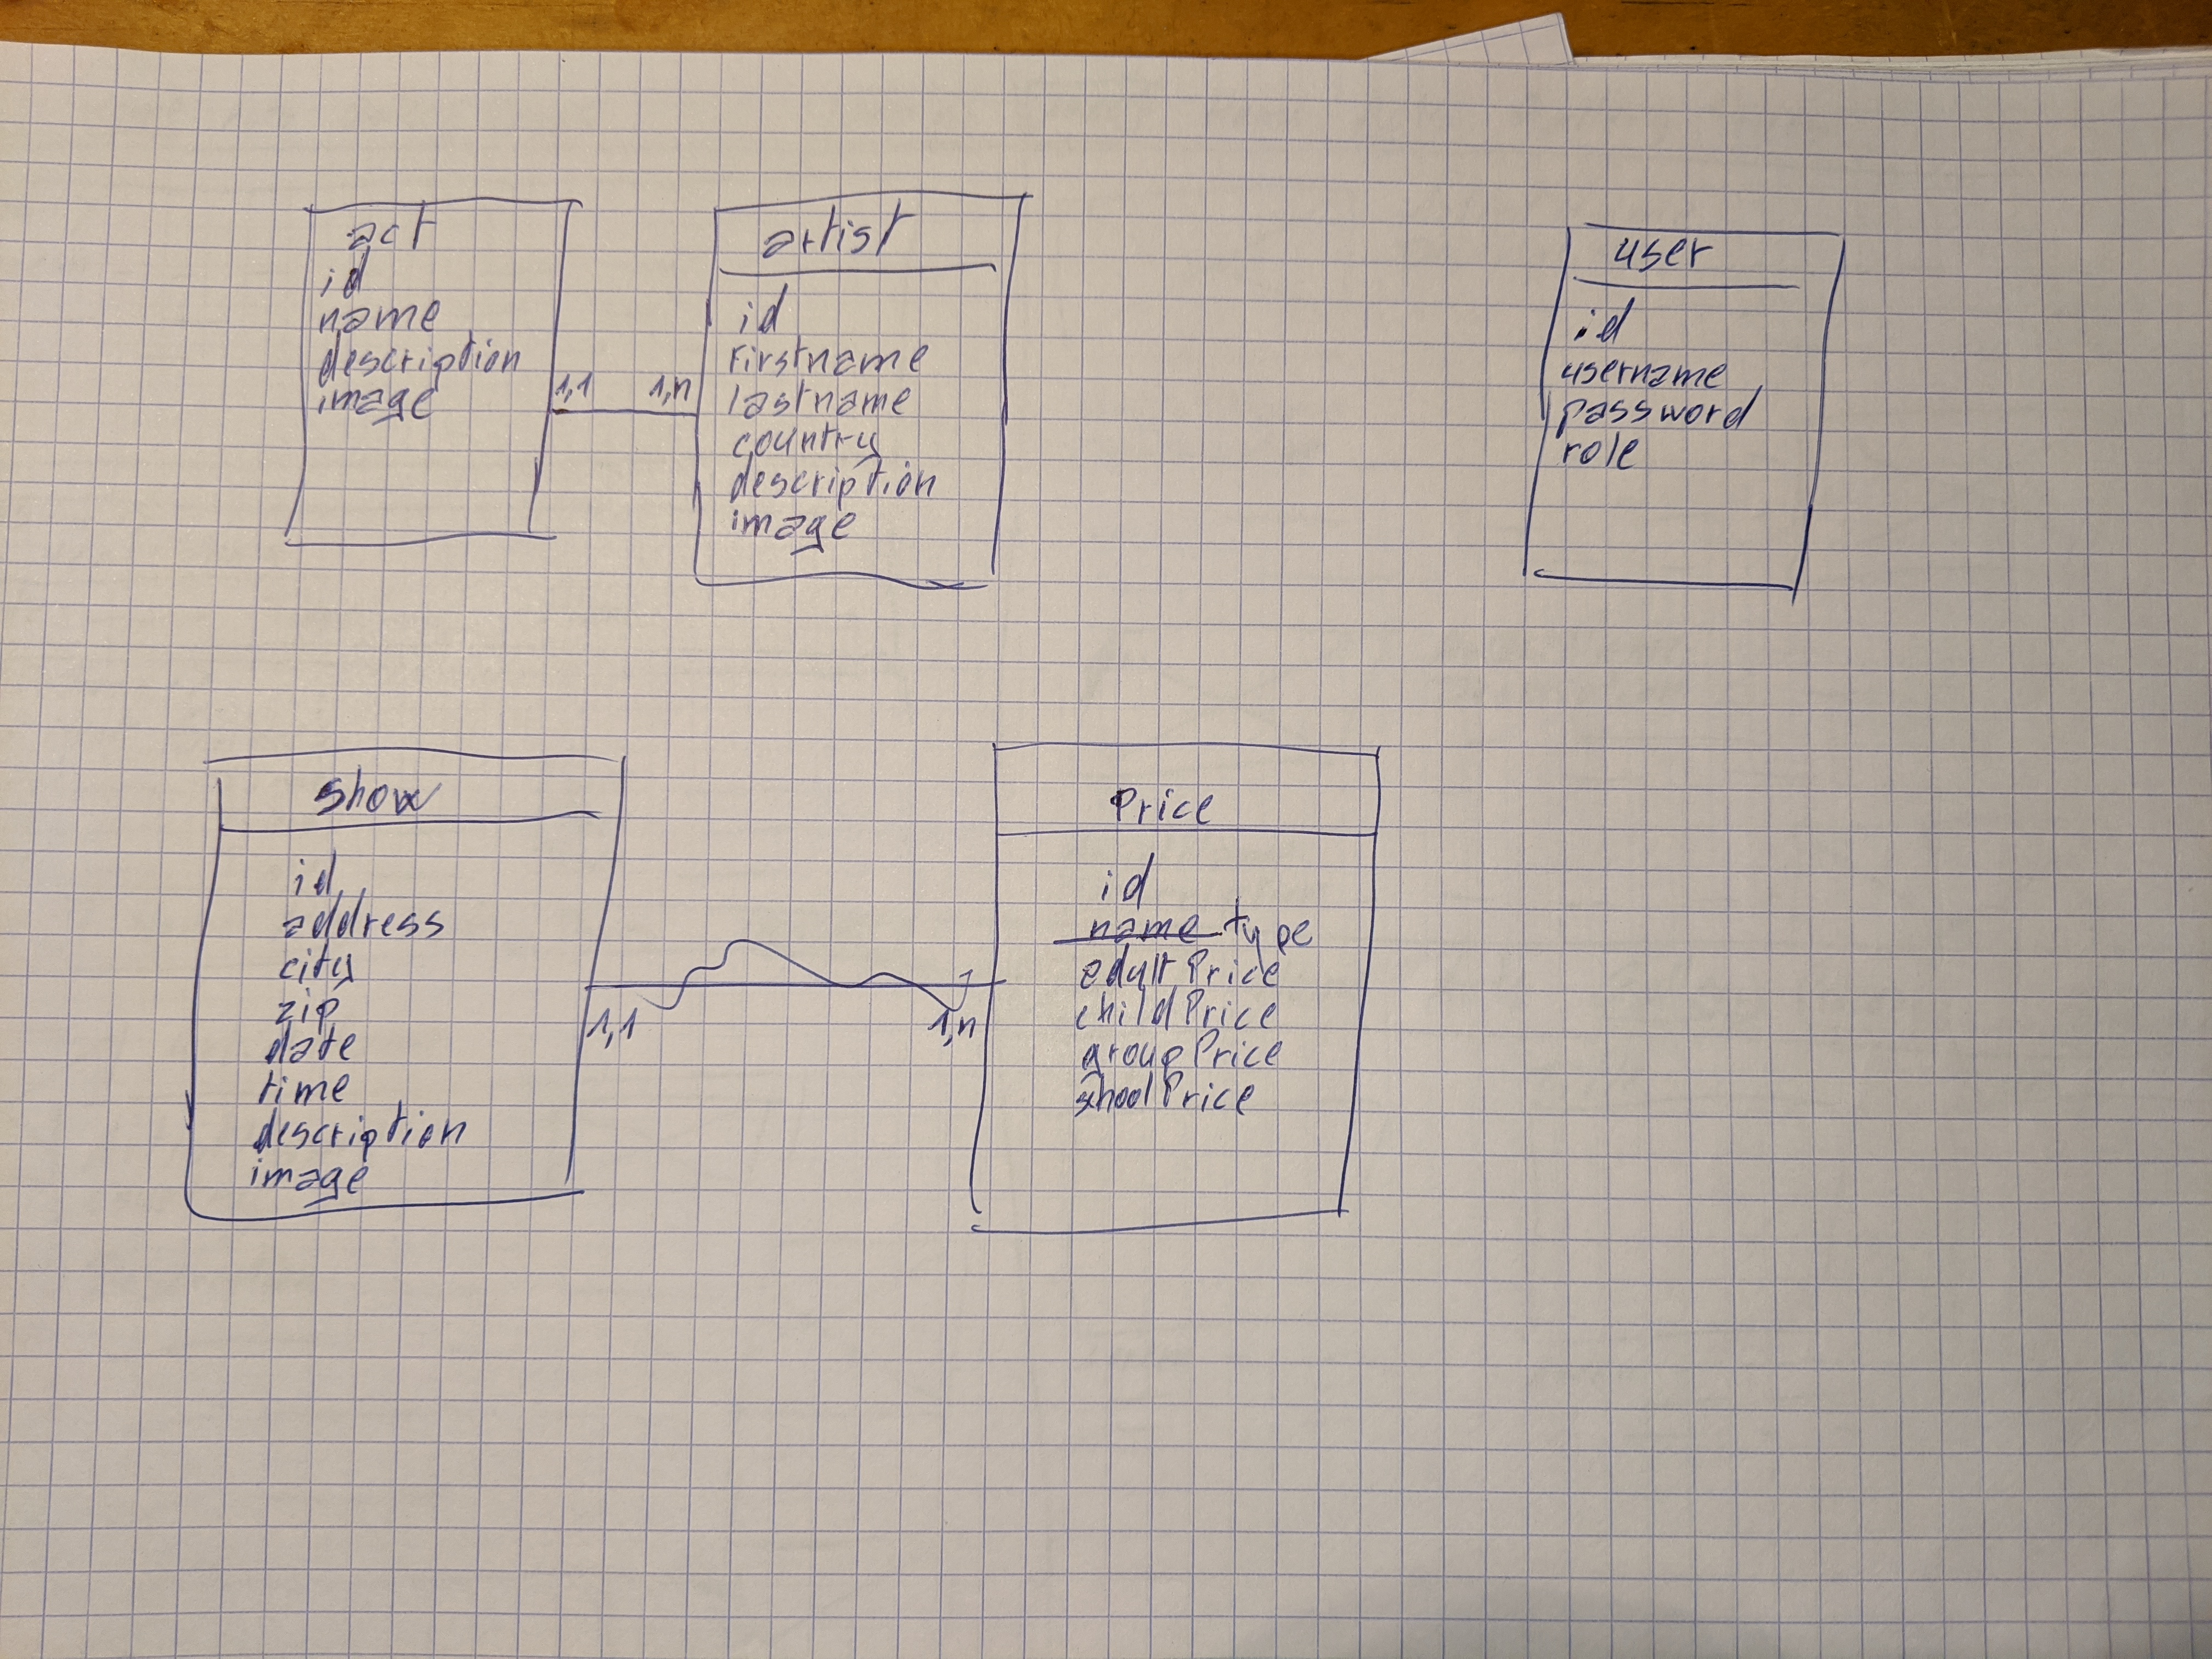 act
id
name
description
image
1,1
1,n
artist
id
firstname
lastname
country
description
image
user
id
username
password
role
show
id
address
city
zip
date
time
description
image
1,1
1,n
Price
id
name type
adultPrice
childPrice
groupPrice
shoolPrice